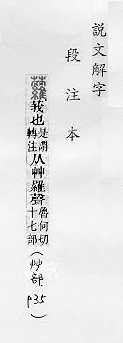 說文解字
段注本
蘿莪也是謂轉注从艸羅聲魯何切十七部(艸部 p35)